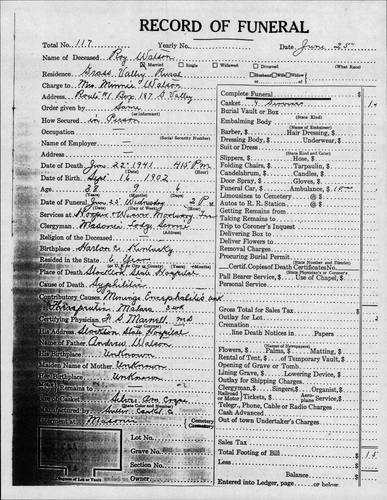 RECORD OF FUNERAL
Total No. 117 Yearly No. Date June 25
Name of Deceased Roy Watson
Married Single Widowed Divorced (What Race)
Residence Grass Valley Rural Husband Wife Widow of
Charge to Mrs. Minnie Watson
Address Route #1 Box 187 G. Valley
Order given by Same
(or informant)
How Secured in Person
Occupation —
(Social Security Number)
Employer —
Address —
Date of Death June 22 1941 4:15 P.M.
(Hour)
Date of Birth Sept. 16 1902
Age 38 9 6
(Years) (Months) (Days)
Date of Funeral June 25 Wednesday 2 P.M.
Services at Hooper & Weaver Mortuary
Clergyman Masonic Lodge Service
Religion of the Deceased
Birthplace Harlan Co. Kentucky
Resided in the State 6 Years
Place of Death Stockton State Hospital
Cause of Death Syphilitic
Contributory Causes Meningo Encephalitis and
Therapeutic Malaria
Certifying Physician
His Address Stockton State Hospital
Name of Father Andrew Watson
His Birthplace Unknown
Maiden Name of Mother Unknown
Her Birthplace Unknown
Remains to
of Casket Silver
(State Colored Covered)
Manufactured by Casket Co
Masonic Cemetery Crematory
Lot No.
Grave No.
Section No.
Owner
Diagram of Lot or Vault
Complete Funeral
Casket
Burial Vault or Box
(State Kind)
Embalming Body
(Name of Embalmer)
Barber, Hair Dressing,
Dressing Body, Underwear,
Suit or Dress
(State Kind and Color)
Slippers, Hose,
Folding Chairs, Tarpaulin,
Candelabrum, Candles,
Door Spray, Gloves,
Funeral Car, Ambulance,
Limousines to Cemetery @
Autos to R. R. Station @
Getting Remains from
Taking Remains to
Trip to Coroner's Inquest
Delivering Box to
Deliver Flowers to
Removal Charges
Procuring Burial Permit
Certif. Copies of Death Certificate No.
(State Physician's or Coroner's)
Pall Bearer Service, Use of Chapel,
Personal Service
Gross Total for Sales Tax
Outlay for Lot
Cremation
line Death Notices in Papers
(Names of Newspapers)
Flowers, Palms, Matting,
Rental of Tent, of Temporary Vault,
Opening of Grave or Tomb
Lining Grave, Lowering Device,
Outlay for Shipping Charges
Clergyman, Singers, Organist,
Railroad or Motor Tickets, Aeroplane Service,
Telegr., Phone, Cable or Radio Charges
Cash Advanced
Out of town Undertaker's Charges
Sales Tax
Total Footing of Bill
Less
Balance
Entered into Ledger, page or below.